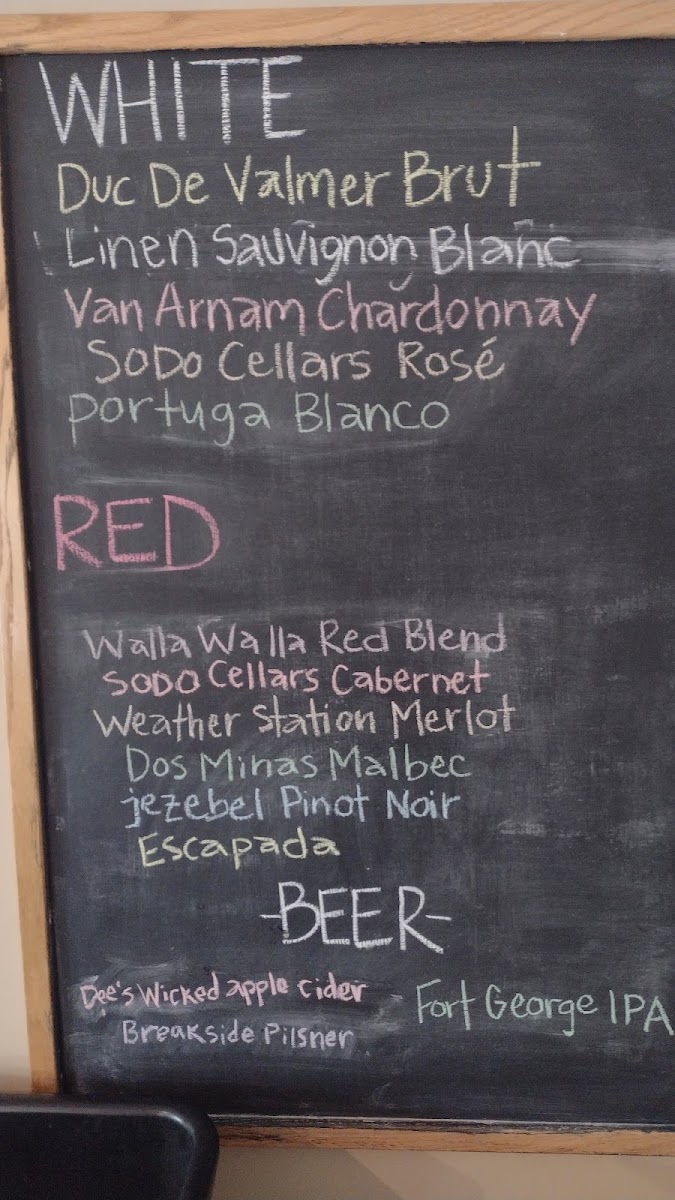 WHITE
Duc De Valmer Brut
Linen Sauvignon Blanc
Van Arnam Chardonnay
SoDo Cellars Rosé
Portuga Blanco
RED
Walla Walla Red Blend
SODO Cellars Cabernet
Weather Station Merlot
Dos Minas Malbec
jezebel Pinot Noir
Escapada
-BEER-
Dee's Wicked apple cider
Fort George IPA
Breakside Pilsner